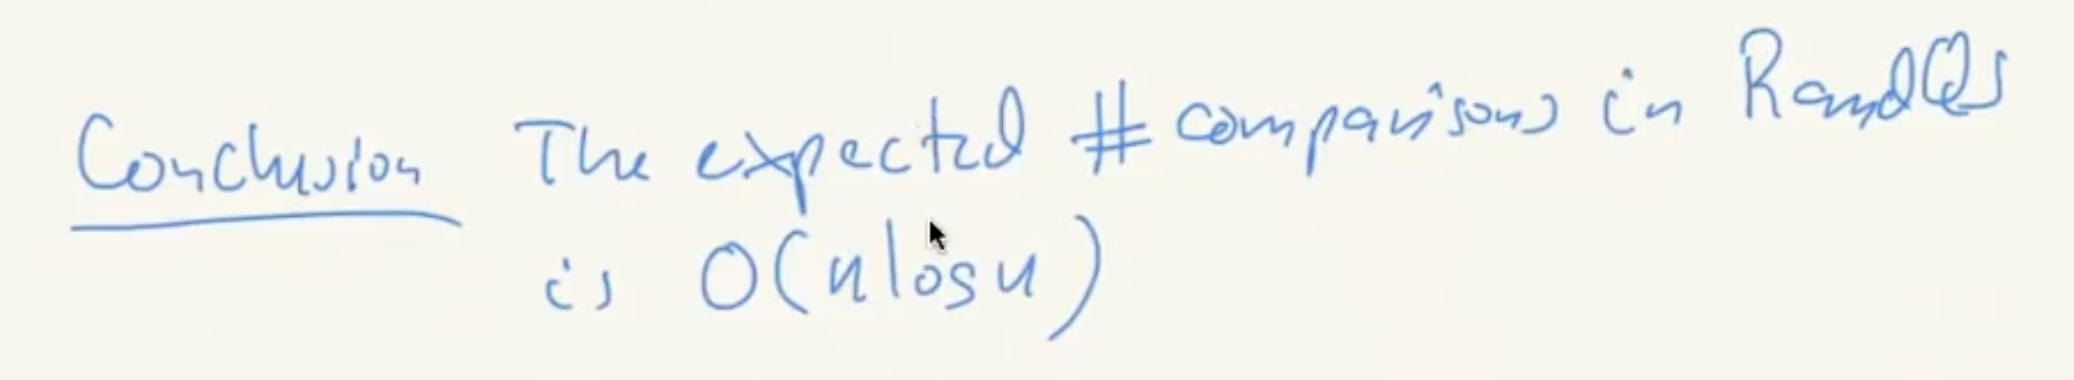 Conclusion The expected # comparisons in RandQS
is O(n log n)